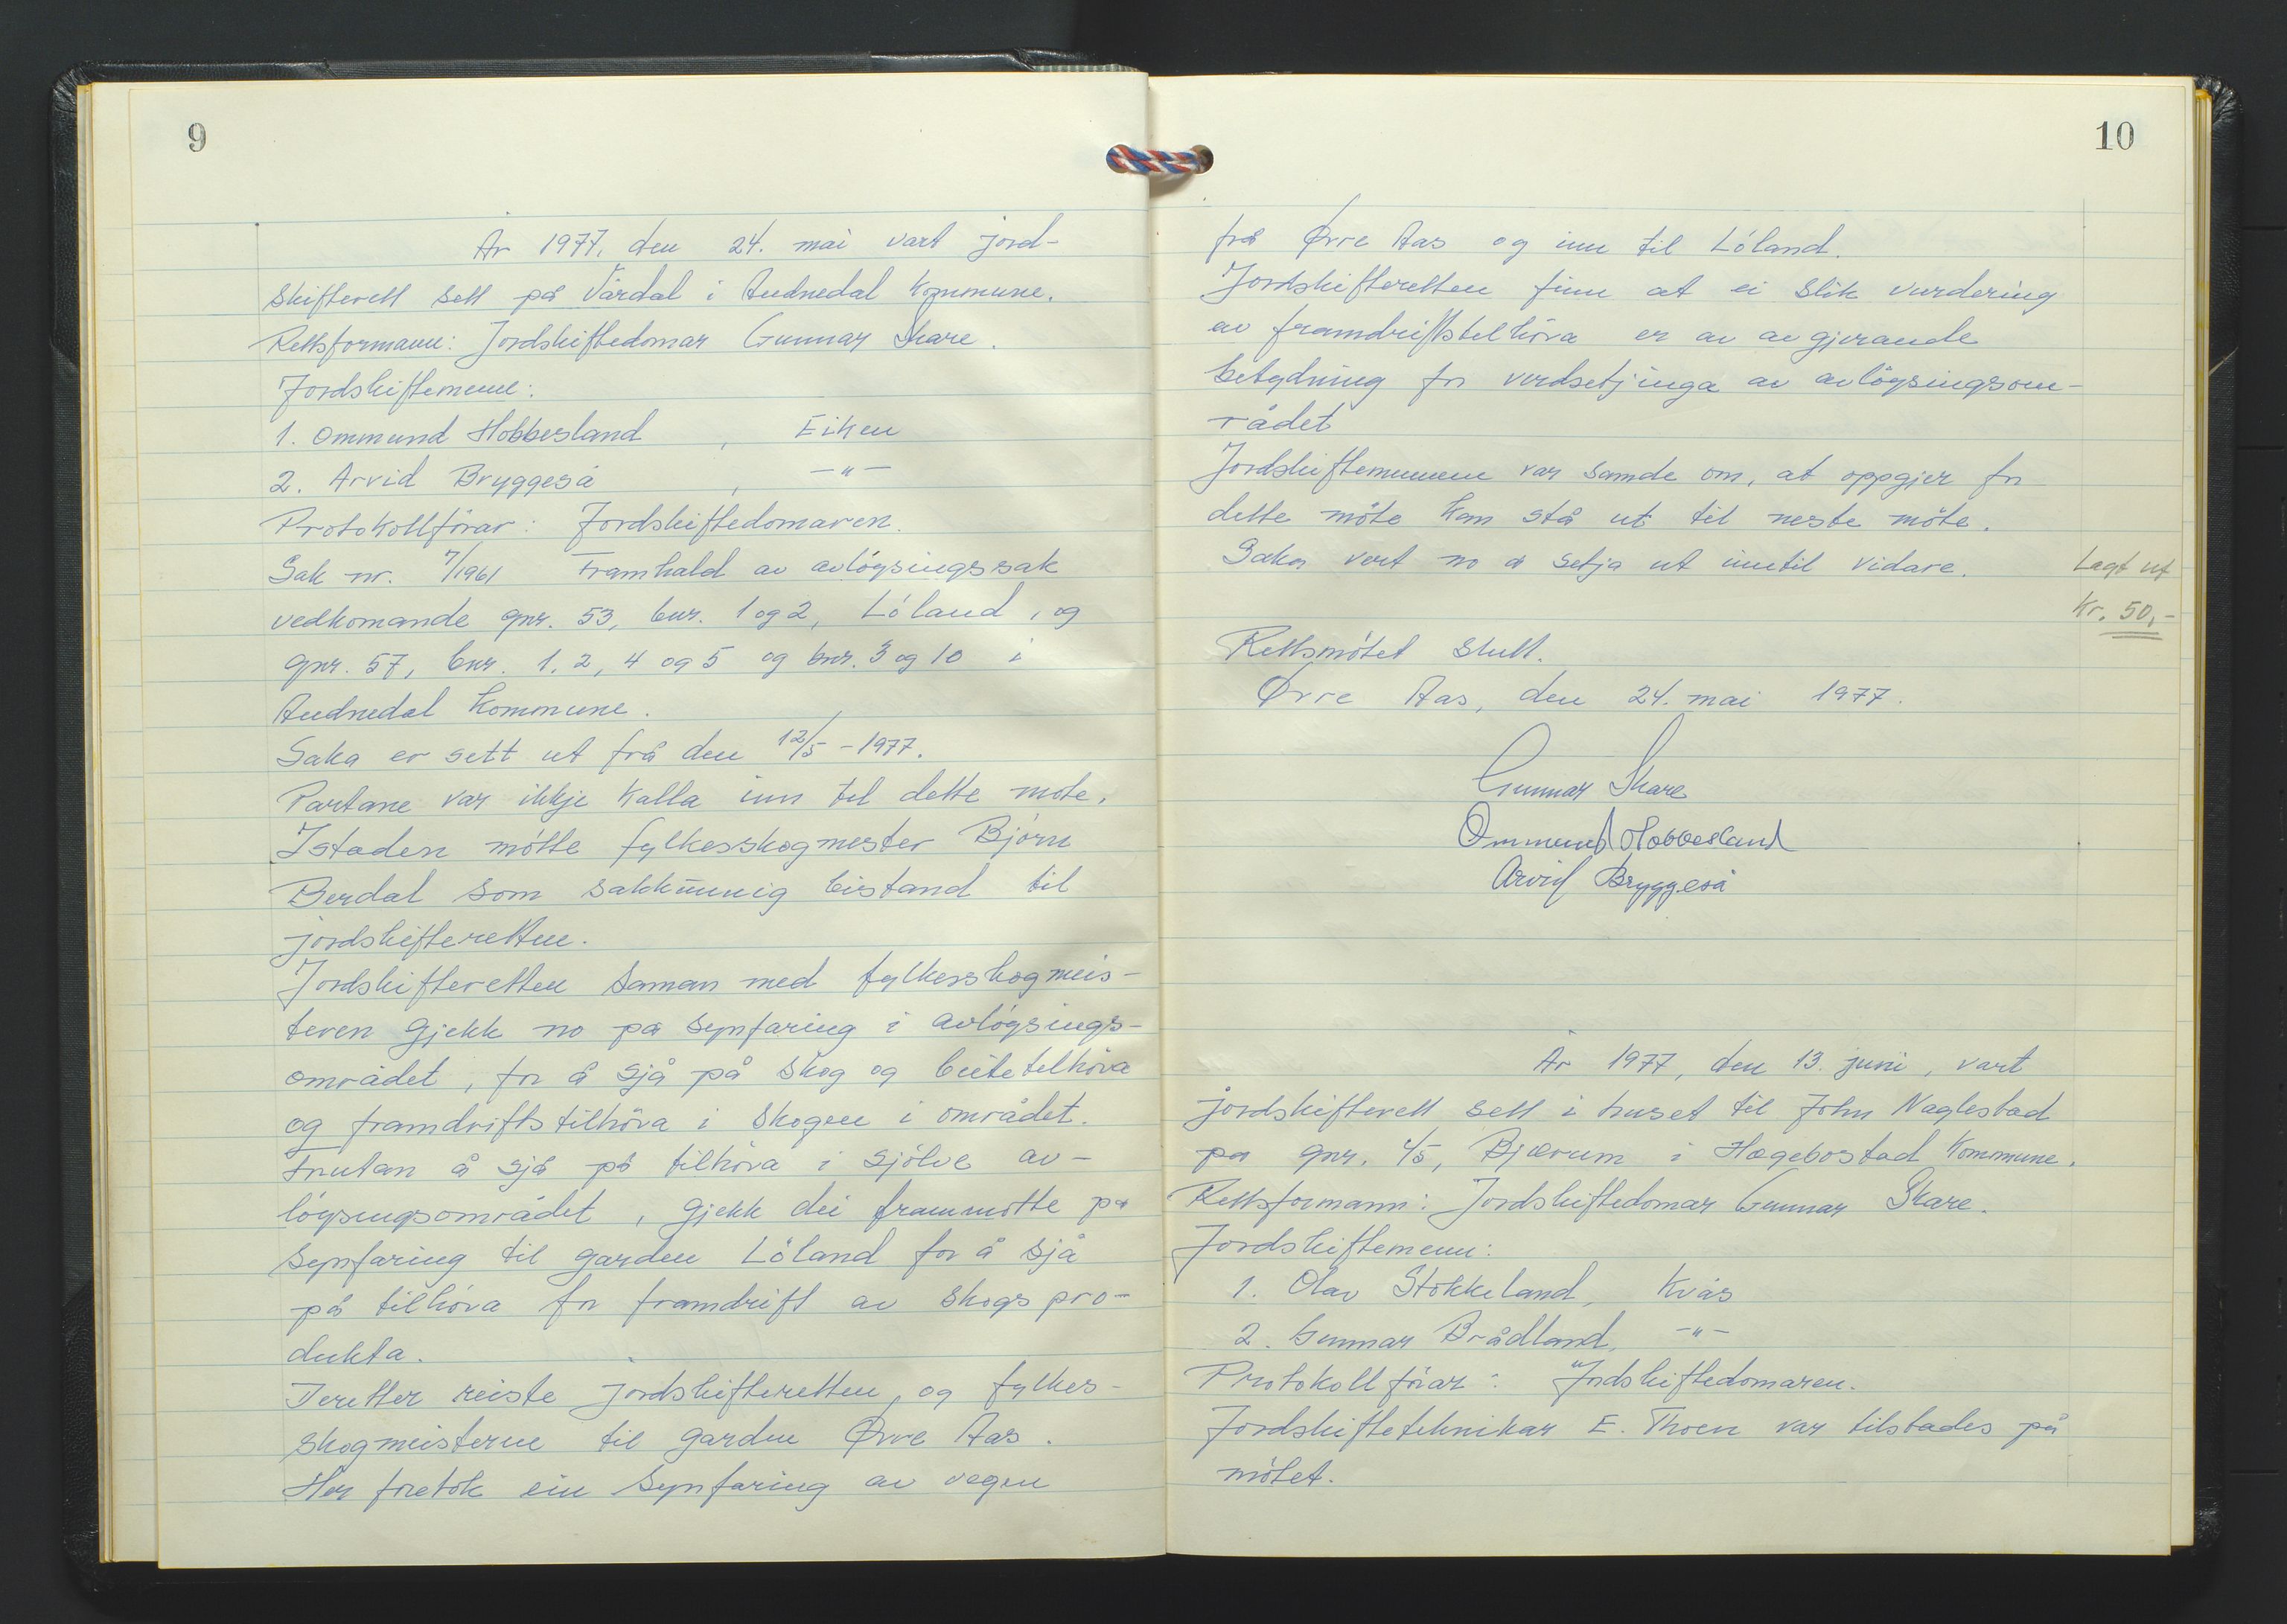 9
År 1977, den 24. mai vart jord-
skifterett sett på Vårdal i Audnedal kommune.
Rettsformann: Jordskiftedomar Gunnar Skare.
Jordskiftemenn:
1. Ommund Hobbesland, Eiken
2. Arvid Bryggeså, -"-
Protokollförar: Jordskiftedomaren.
Sak nr. 7/1961 Framhald av avlöysingssak
vedkomande gnr. 53, bnr. 1 og 2, Löland, og
gnr. 57, bnr. 1, 2, 4 og 5 og bnr. 3 og 10 i
Audnedal kommune.
Saka er sett ut frå den 12/5-1977.
Partane var ikkje kalla inn til dette møte.
Istaden mötte fylkesskogmester Björn
Berdal som sakkunnig bistand til
jordskifteretten.
Jordskifteretten saman med fylkesskogmeis-
teren gjekk no på synfaring i avlöysings-
området, for å sjå på skog og beitetilhöva
og framdriftstilhöva i skogen i området.
Forutan å sjå på tilhöva i sjölve av-
löysingsområdet, gjekk dei frammötte på
synfaring til garden Löland for å sjå
på tilhöva for framdrift av skogspro-
dukta.
Deretter reiste jordskifteretten og fylkes-
skogmeisteren til garden Øvre Aas.
Her foretok ein synfaring av vegen
10
frå Øvre Aas og inn til Löland.
Jordskifteretten finn at ei slik vurdering
av framdriftstilhöva er av avgjerande
betydning for verdsetjinga av avlöysingsom-
rådet
Jordskiftemennene var samde om, at oppgjer for
dette möte kan stå ut til neste möte.
Saka vert no å setja ut inntil vidare.
Lagt ut
Kr. 50,-
Rettsmötet slutt.
Øvre Aas, den 24. mai 1977.
Gunnar Skare
Ommund Hobbesland
Arvid Bryggeså
År 1977, den 13. juni, vart
jordskifterett sett i huset til John Naglestad
på gnr. 4/5, Bjærum i Hægebostad kommune.
Rettsformann: Jordskiftedomar Gunnar Skare.
Jordskiftemenn:
1. Olav Stokkeland, Kvås
2. Gunnar Brådland, -"-
Protokollförar: Jordskiftedomaren.
Jordskifteteknikar E. Thoen var tilstades på
mötet.